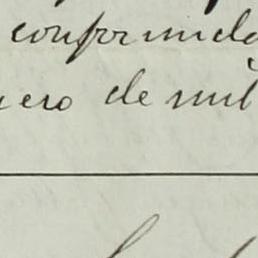 conformida
ero de mil